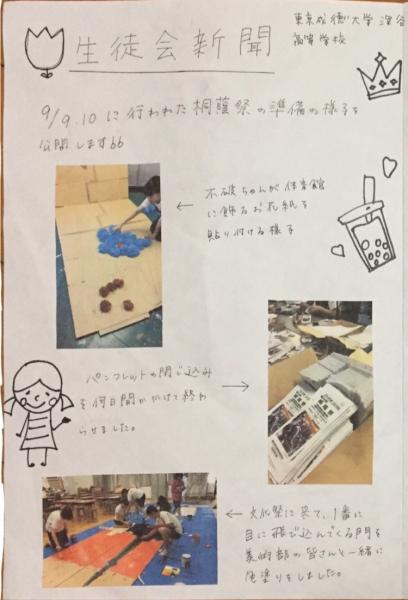 東京成徳大学深谷
高等学校
生徒会新聞
9/9.10に行われた桐蔭祭の準備の様子を
公開します66
不破ちゃんが体育館
に飾るお花紙を
貼り付ける様子
パンフレットの閉じ込み
を何日間かかけて終わ
らせました。
文化祭に来て、1番に
目に飛び込んでくる門を
美術部の皆さんと一緒に
色塗りをしました。